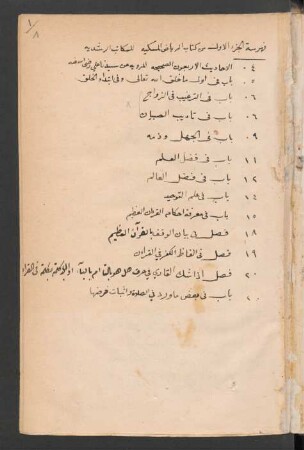 ١/٨
فهرسة الجزء الاول من كتاب الرياض المسكيه للمكاتب الرشديه
٠٤ الاحاديث الاربعون الصحيحه المرويه عن سيدنا علي رضي الله عنه
٠٥ باب في اول ما خلق الله تعالى وفي ابتداء الخلق
٠٦ باب في الترغيب في الزواج
٠٦ باب في تاديب الصبيان
٠٩ باب في الجهل وذمه
١١ باب في فضل العلم
١٢ باب في فضل العالم
١٤ باب في علم التوحيد
١٥ باب في معرفة احكام القران العظيم
١٨ فصل في بيان الوقف بالقرآن العظيم
١٩ فصل في الفاظ الكفر في القران
٢٠ فصل اذا شك القارئ في حرف هل هو بالتاء ام بالياء
٢٠ باب في بعض ما ورد في الصلاة واثبات فرضها